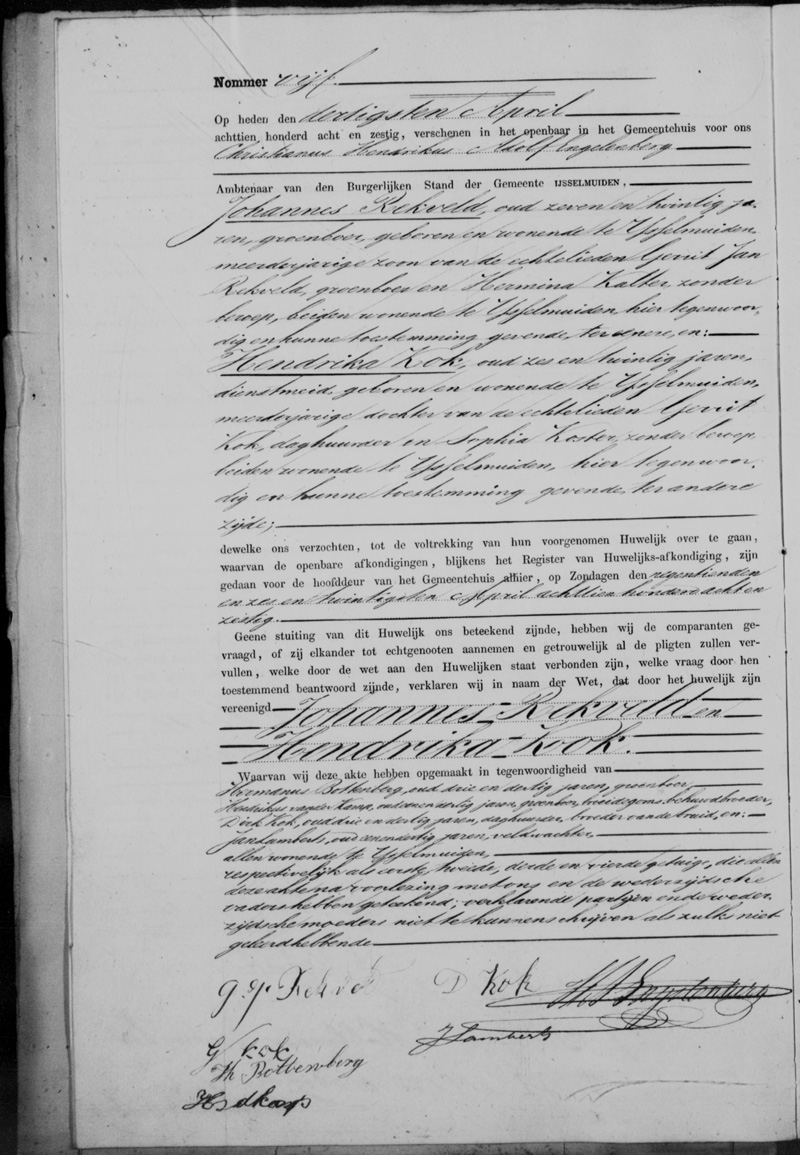 Nommer vijf.
Op heden den dertigsten April
achttien honderd acht en zestig, verschenen in het openbaar in het Gemeentehuis voor ons
Christianus Hendrikus Adolf Engelenberg
Ambtenaar van den Burgerlijken Stand der Gemeente IJSSELMUIDEN,
Johannes Rekveld, oud zeven en twintig ja-
ren, groenboer, geboren en wonende te IJsselmuiden,
meerderjarige zoon van de echtelieden Gerrit Jan
Rekveld, groenboer en Hermina Kalter, zonder
beroep, beiden wonende te IJsselmuiden, hier tegenwoor-
dig en hunne toestemming gevende, ter eenere, en:
Hendrika Kok, oud zes en twintig jaren,
dienstmeid, geboren en wonende te IJsselmuiden,
meerderjarige dochter van de echtelieden Gerrit
Kok, daghuurder en Sophia Koster, zonder beroep,
beiden wonende te IJsselmuiden, hier tegenwoor-
dig en hunne toestemming gevende, ter andere
zijde;
dewelke ons verzochten, tot de voltrekking van hun voorgenomen Huwelijk over te gaan,
waarvan de openbare afkondigingen, blijkens het Register van Huwelijks-afkondiging, zijn
gedaan voor de hoofddeur van het Gemeentehuis alhier, op Zondagen den negentienden
en zes en twintigsten April achttien honderd acht en
zestig.
Geene stuiting van dit Huwelijk ons beteekend zijnde, hebben wij de comparanten ge-
vraagd, of zij elkander tot echtgenooten aannemen en getrouwelijk al de pligten zullen ver-
vullen, welke door de wet aan den Huwelijken staat verbonden zijn, welke vraag door hen
toestemmend beantwoord zijnde, verklaren wij in naam der Wet, dat door het huwelijk zijn
vereenigd Johannes Rekveld en
Hendrika Kok.
Waarvan wij deze akte hebben opgemaakt in tegenwoordigheid van
Hermanus Bottenberg, oud drie en dertig jaren, groenboer,
Hendrikus van der Kamp, oud een en dertig jaren, groenboer, bruidegoms behuwdbroeder,
Dirk Kok, oud drie en dertig jaren, daghuurder, broeder van de bruid, en:
Jan Lamberts, oud een en dertig jaren, veldwachter,
allen wonende te IJsselmuiden,
respectivelijk als eerste, tweede, derde en vierde getuige, die allen
deze akte na voorlezing met ons en de wederzijdsche
vaders hebben geteekend; verklarende partijen en de weder-
zijdsche moeders niet te kunnen schrijven als zulks niet
geleerd hebbende
D Kok
J Lamberts
G kok
H Bottenberg